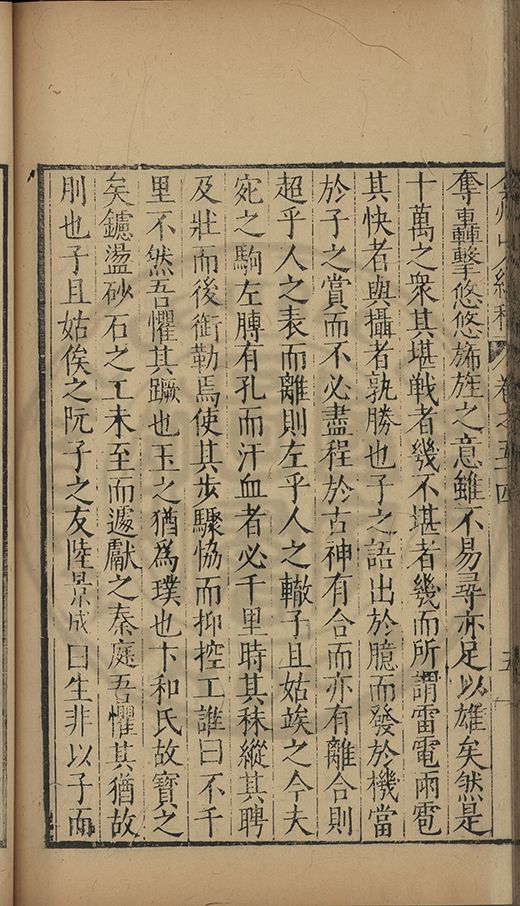 奪轟擊悠悠旆旌之意雖不易尋亦足以雄矣然是
十萬之衆其堪戰者幾不堪者幾而所謂雷電雨雹
其快者與攝者孰勝也子之語出於臆而發於機當
於子之賞而不必盡程於古神有合而亦有離合則
超乎人之表而離則左乎人之轍子且姑竢之今夫
宛之駒左膊有孔而汗血者必千里時其秣縱其聘
及壯而後銜勒焉使其步驟恊而抑控工誰曰不千
里不然吾懼其蹶也玉之猶爲璞也卞和氏故寶之
矣鑢盪砂石之工未至而遽獻之秦庭吾懼其猶故
刖也子且姑俟之阮子之友陸景成曰生非以子而